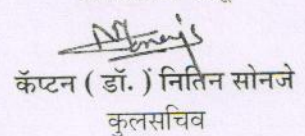 कॅप्टन ( डॉ. ) नितिन सोनजे
कुलसचिव